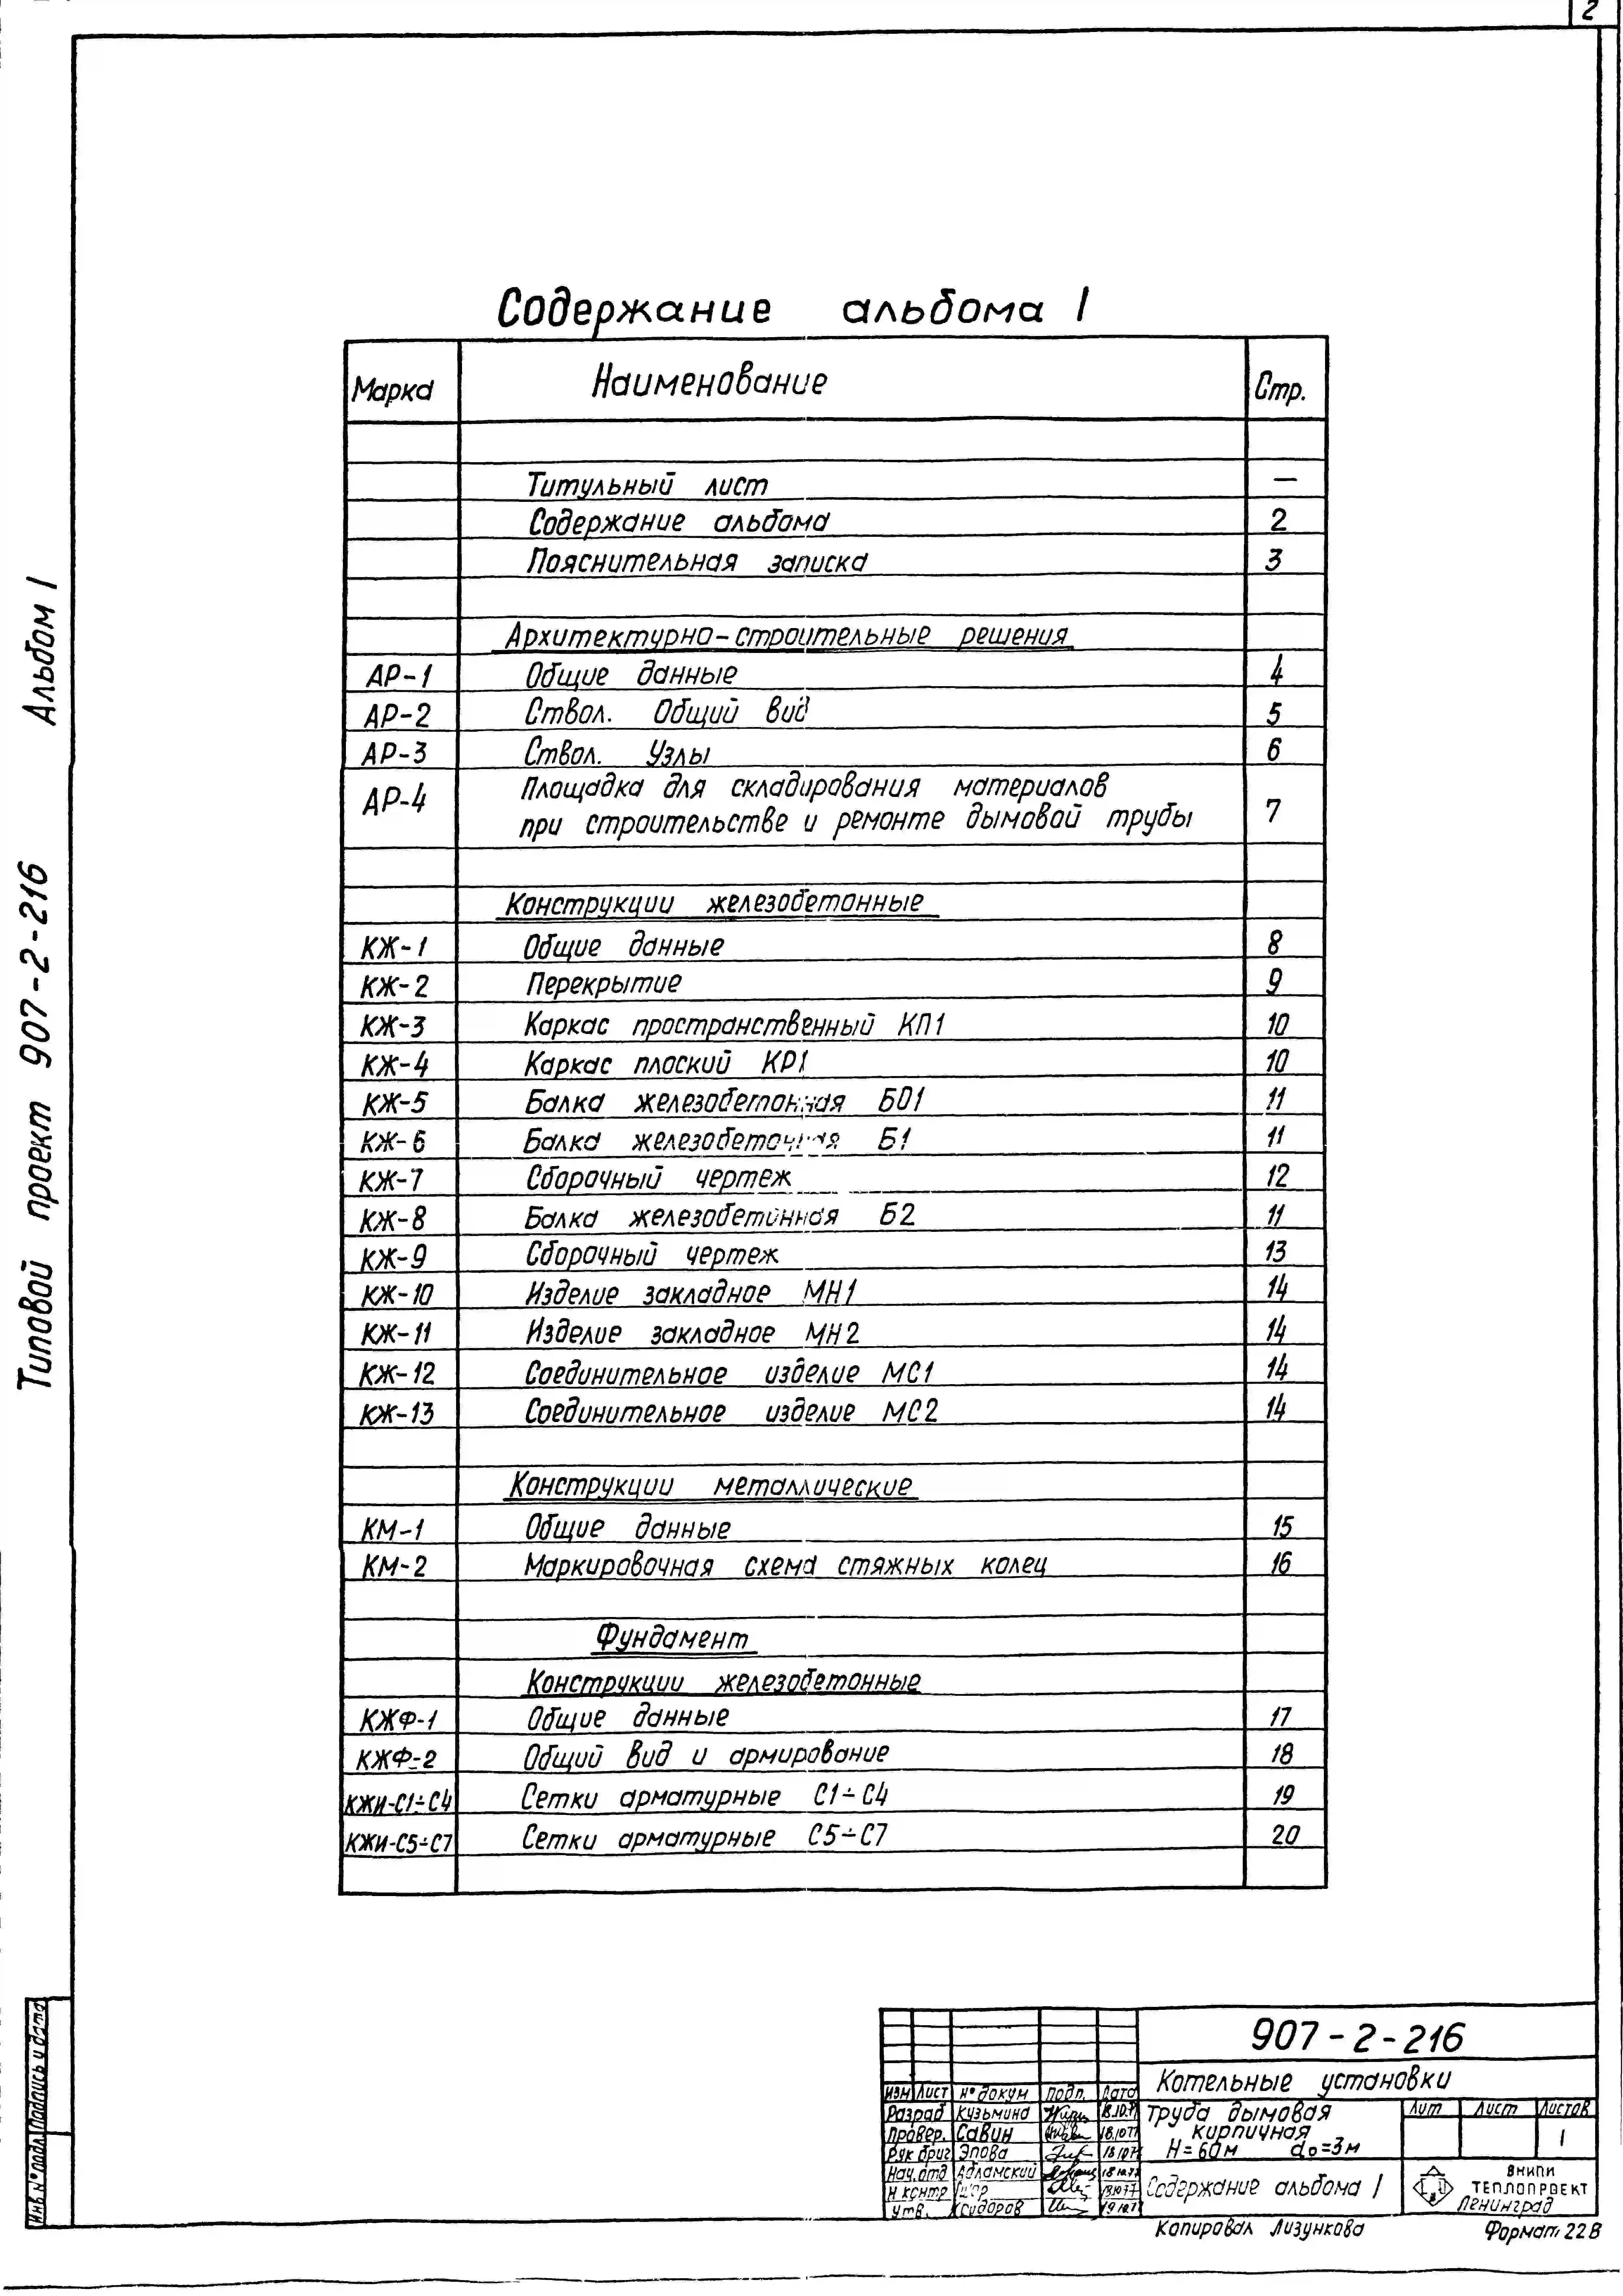 2
Альбом I
Типовой проект 907-2-216
Содержание альбома I
Марка Наименование Стр.
Титульный лист —
Содержание альбома 2
Пояснительная записка 3
Архитектурно-строительные решения
АР-1 Общие данные 4
АР-2 Ствол. Общий вид 5
АР-3 Ствол. Узлы 6
АР-4 Площадка для складирования материалов
при строительстве и ремонте дымовой трубы 7
Конструкции железобетонные
КЖ-1 Общие данные 8
КЖ-2 Перекрытие 9
КЖ-3 Каркас пространственный КП1 10
КЖ-4 Каркас плоский КР1 10
КЖ-5 Балка железобетонная БО1 11
КЖ-6 Балка железобетонная Б1 11
КЖ-7 Сборочный чертеж 12
КЖ-8 Балка железобетонная Б2 11
КЖ-9 Сборочный чертеж 13
КЖ-10 Изделие закладное МН1 14
КЖ-11 Изделие закладное МН2 14
КЖ-12 Соединительное изделие МС1 14
КЖ-13 Соединительное изделие МС2 14
Конструкции металлические
КМ-1 Общие данные 15
КМ-2 Маркировочная схема стяжных колец 16
Фундамент
Конструкции железобетонные
КЖФ-1 Общие данные 17
КЖФ-2 Общий вид и армирование 18
КЖИ-С1÷С4 Сетки арматурные С1÷С4 19
КЖИ-С5÷С7 Сетки арматурные С5÷С7 20
Инв № подл Подпись и дата
907-2-216
Котельные установки
Изм Лист № докум Подп. Дата
Разраб Кузьмина 18.10.77
Провер. Савин 18.10.77
Рук бриг Эпова 18.10.77
Нач. отд Абламский 18.10.77
Н контр 18.10.77
Утв. Ксидоров 19.10.77
Труба дымовая
кирпичная
Н=60м do=3м
Лит Лист Листов
1
Содержание альбома I
ВНИПИ
ТЕПЛОПРОЕКТ
Ленинград
Копировал Лизункова Формат 22В